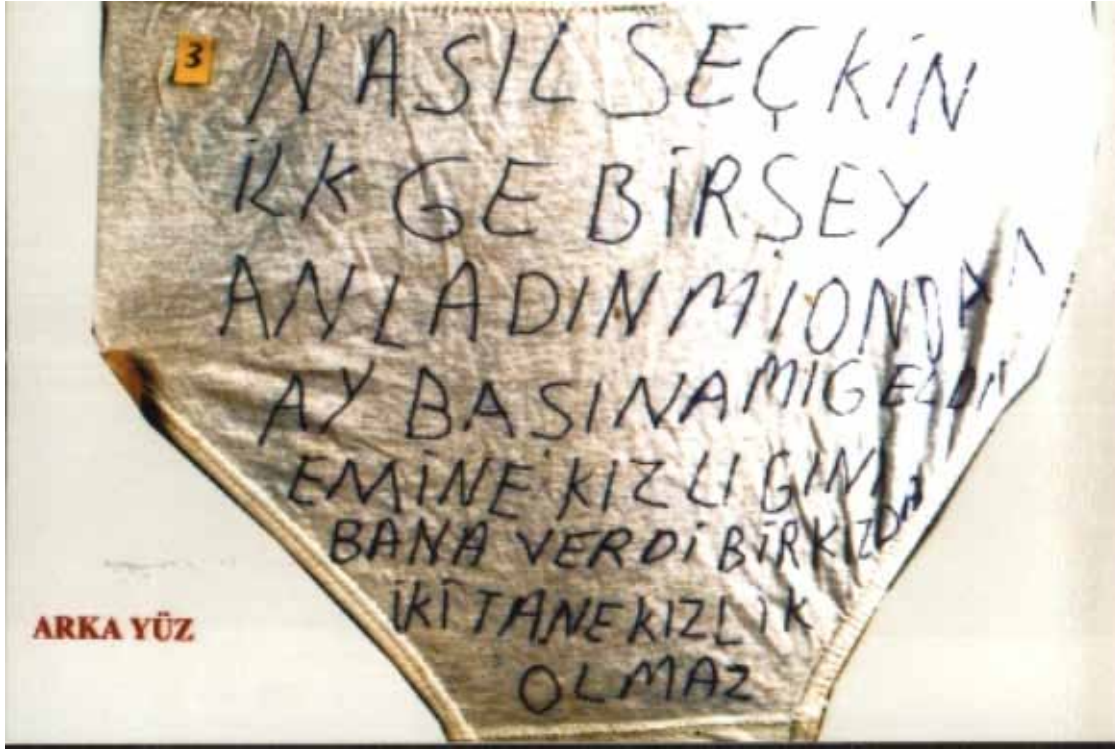 3
NASIL SEÇKİN
İLK GE BİRSEY
ANLADINMIONDAN
AY BASINAMIGELDİN
EMİNE KIZLIGINI
BANA VERDİ BİRKIZDA
İKİTANEKIZLIK
OLMAZ
ARKA YÜZ